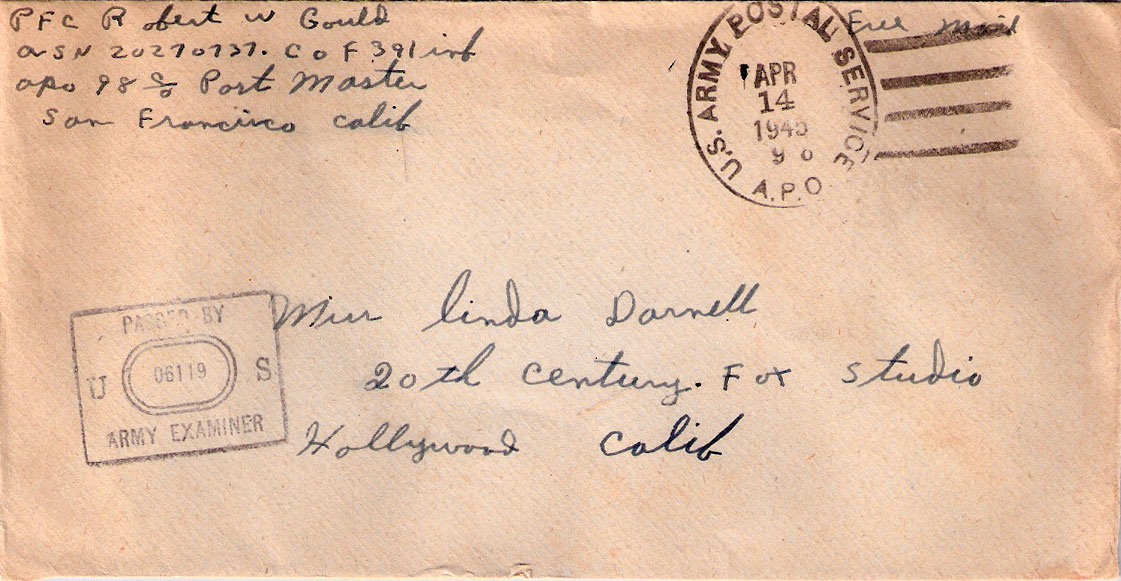 PFC Robert W Gould
ASN 20270737. Co F 391 inf
apo 98 c/o Port Master
San Francisco Calif
Free Mail
U.S. ARMY POSTAL SERVICE
APR
14
1945
98
A.P.O.
PASSED BY
U 06119 S
ARMY EXAMINER
Miss Linda Darnell
20th Century. Fox Studio
Hollywood Calif